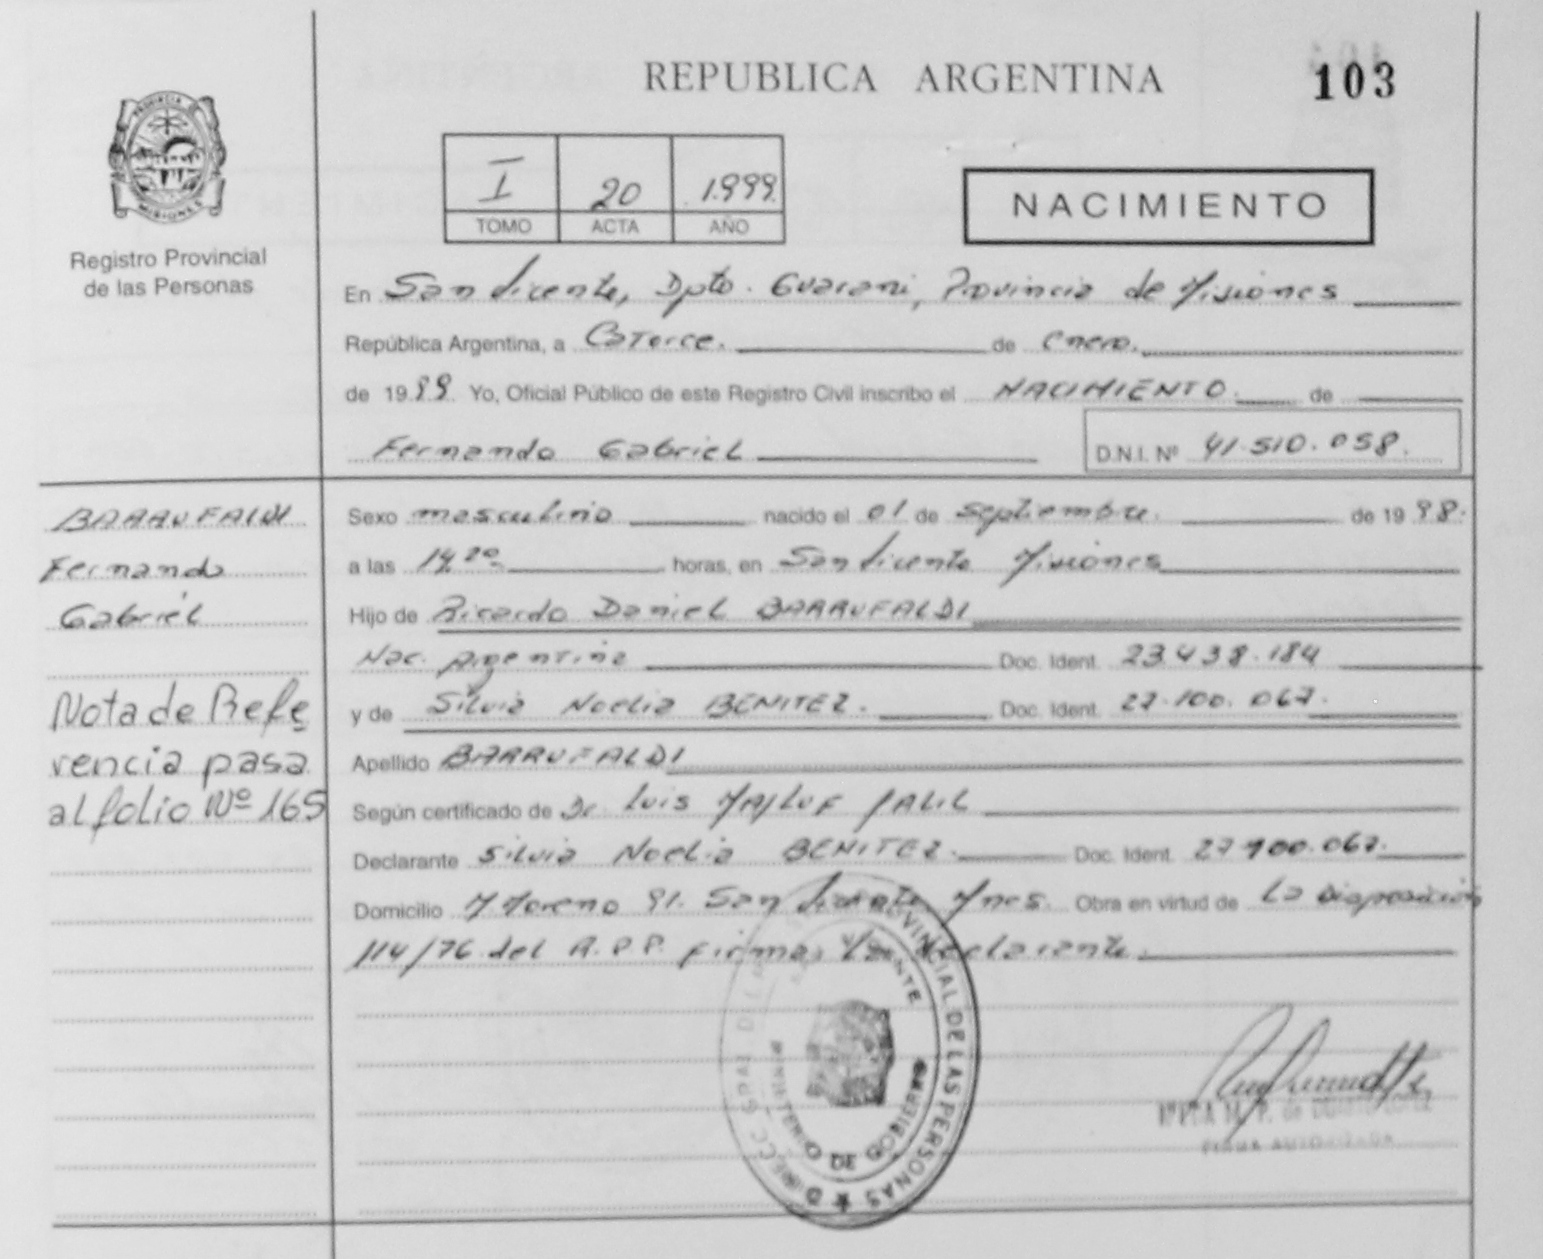 REPUBLICA ARGENTINA
103
PROVINCIA DE
MISIONES
Registro Provincial
de las Personas
I 20 1.999.
TOMO ACTA AÑO
NACIMIENTO
En San Vicente, Dpto. Guarani, Provincia de Misiones
República Argentina, a Catorce. de Enero.
de 19 99 Yo, Oficial Público de este Registro Civil inscribo el NACIMIENTO. de
Fernando Gabriel
D.N.I. Nº 41.510.058.
BARRUFALDI
Fernando
Gabriel
Nota de Refe
rencia pasa
al folio Nº 165
Sexo masculino nacido el 01 de Septiembre. de 19 98.
a las 14,20 horas, en San Vicente Misiones
Hijo de Ricardo Daniel BARRUFALDI
Nac. Argentina Doc. Ident. 23.438.184
y de Silvia Noelia BENITEZ. Doc. Ident. 27.100.067.
Apellido BARRUFALDI
Según certificado de Dr Luis JALIL
Declarante Silvia Noelia BENITEZ. Doc. Ident. 27.100.067.
Domicilio M Moreno 91. San Vicente Mnes. Obra en virtud de La Disposición
114/76 del R.P.P. Firma, La Declarante.
DIRECC. GRAL. DEL REG. PROVINCIAL DE LAS PERSONAS
MINISTERIO DE GOBIERNO
FIRMA AUTORIZADA